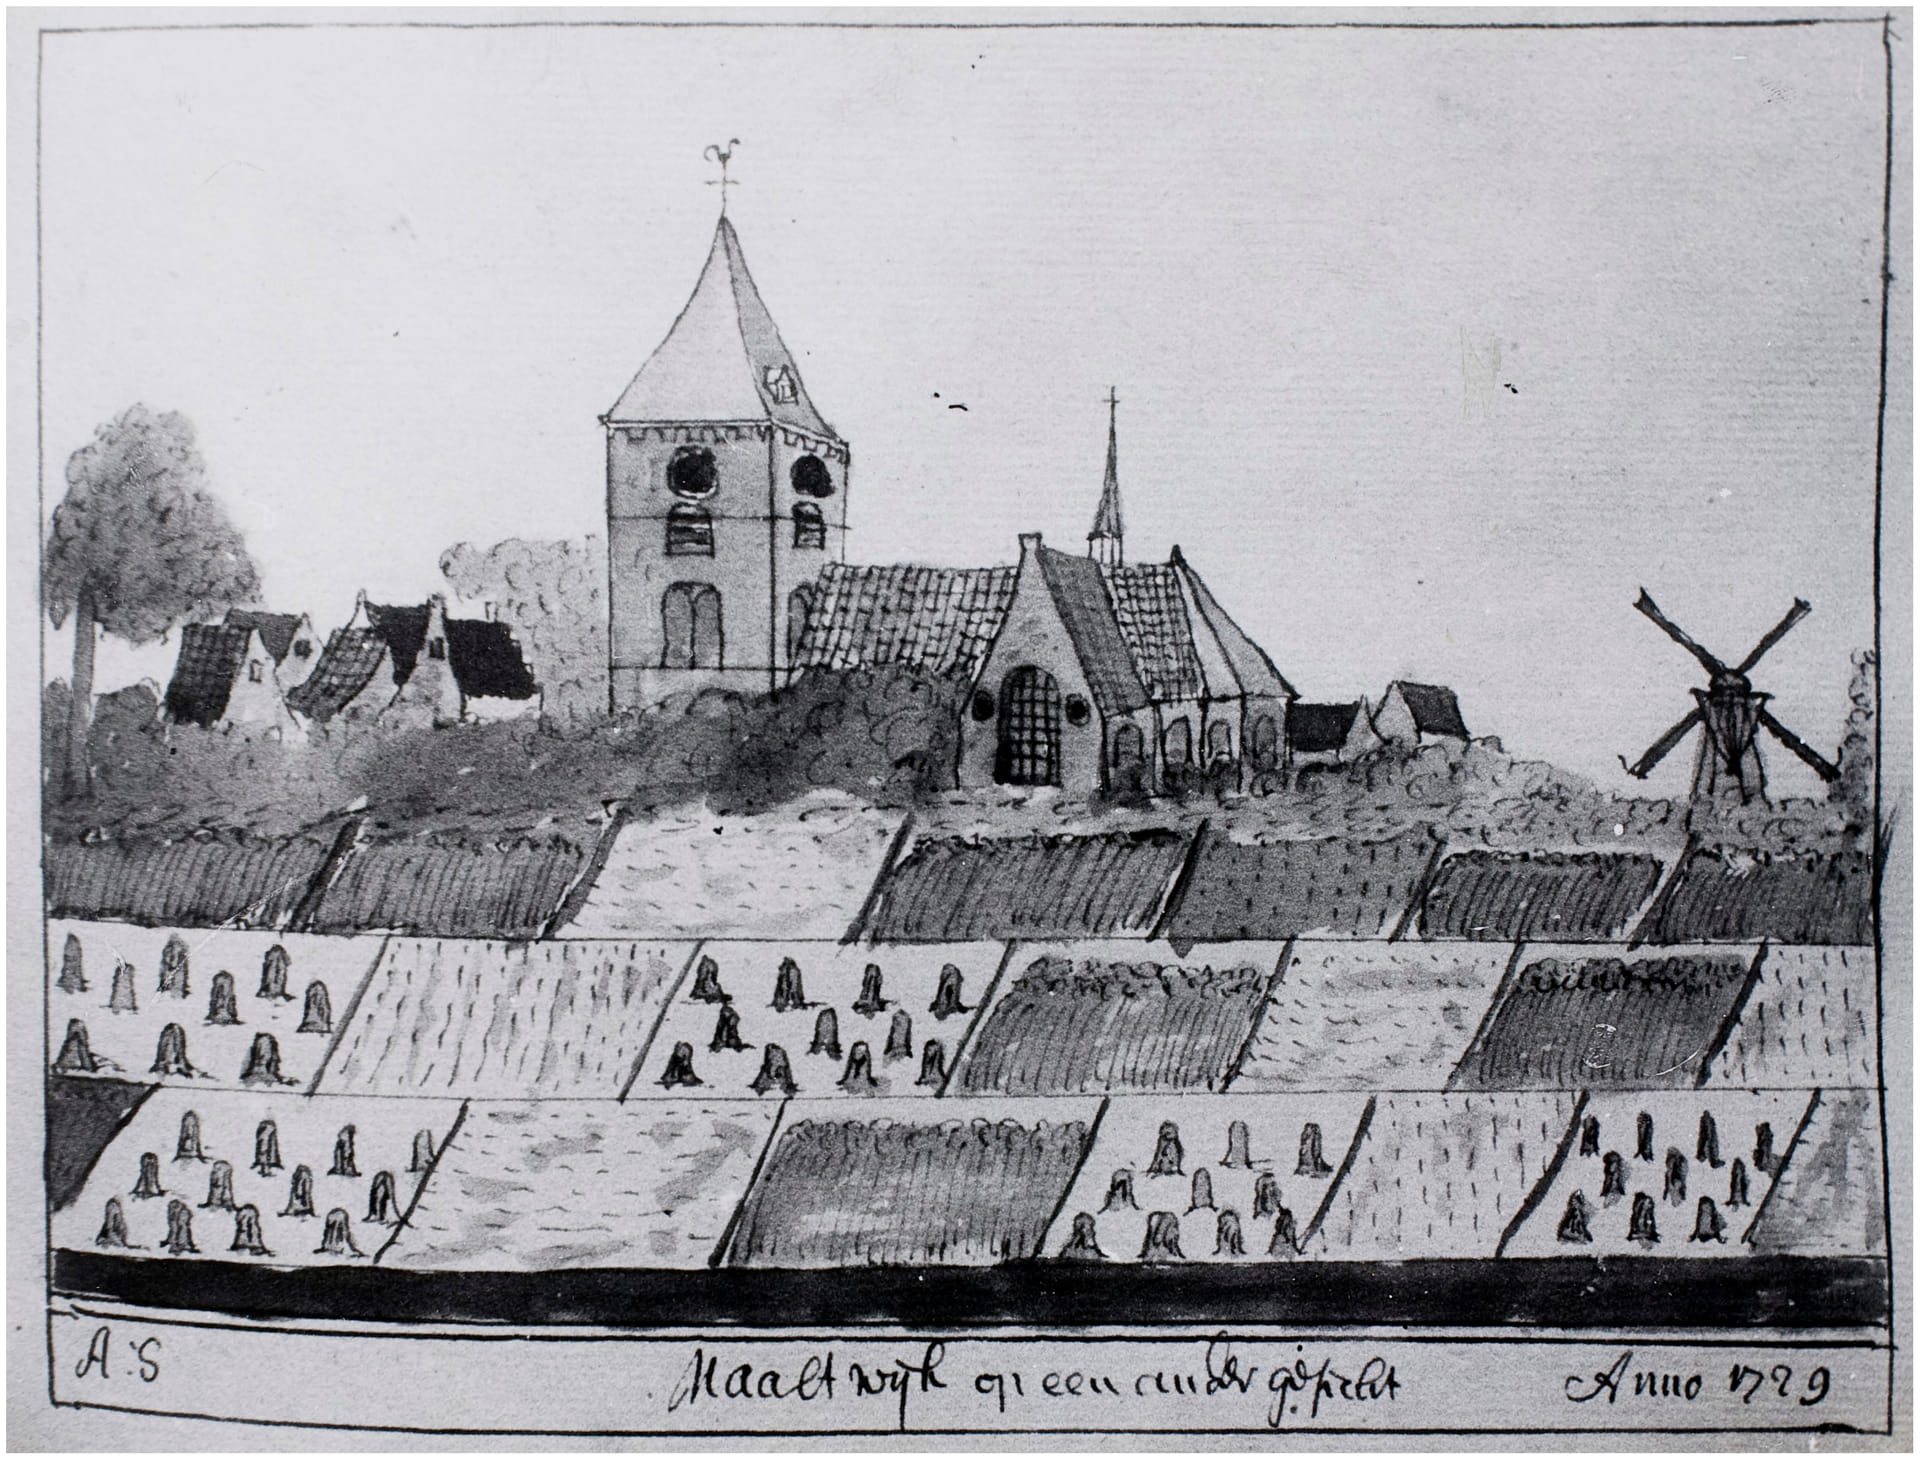 A:S Maalt wijk op een ander gesicht Anno 1729